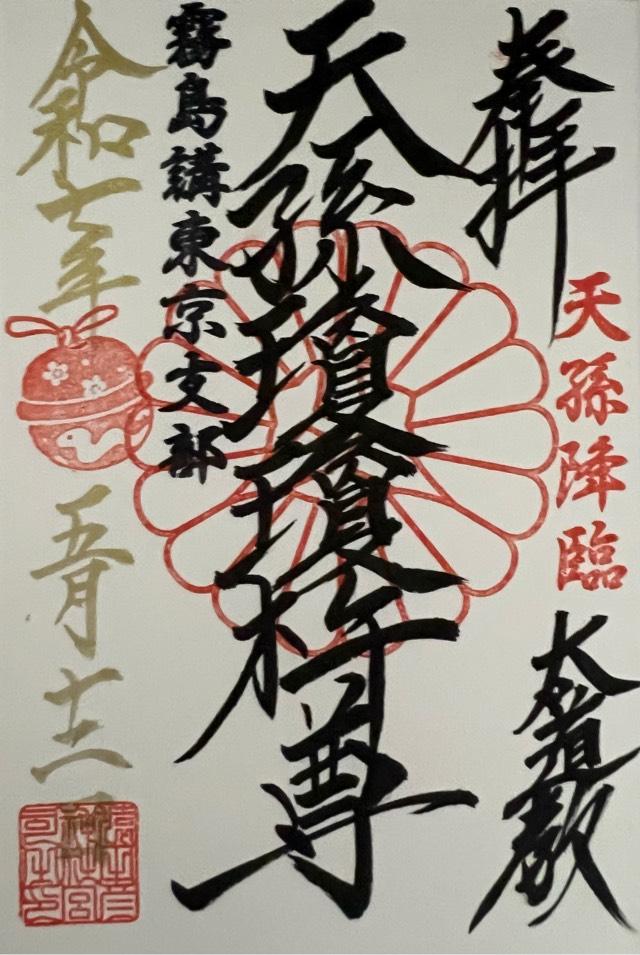 奉拝
天孫降臨
大道教
天孫瓊瓊杵尊
霧島講東京支部
令和七年
五月十二日